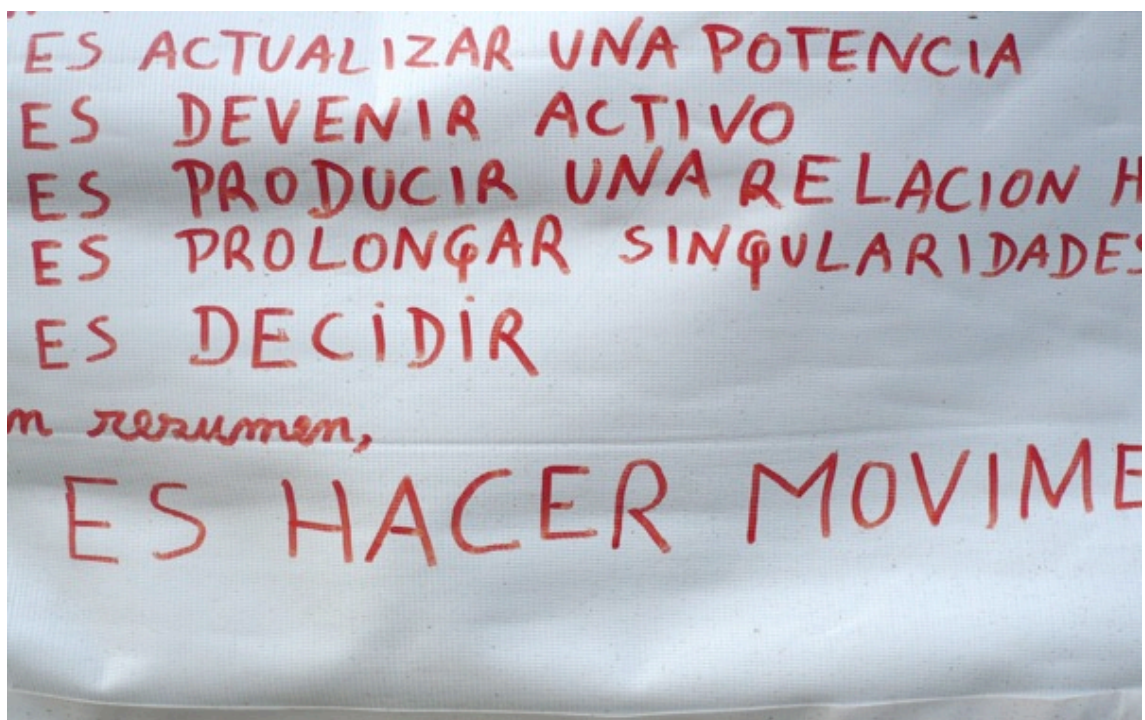 ES ACTUALIZAR UNA POTENCIA
ES DEVENIR ACTIVO
ES PRODUCIR UNA RELACION H
ES PROLONGAR SINGULARIDADES
ES DECIDIR
n resumen,
ES HACER MOVIME